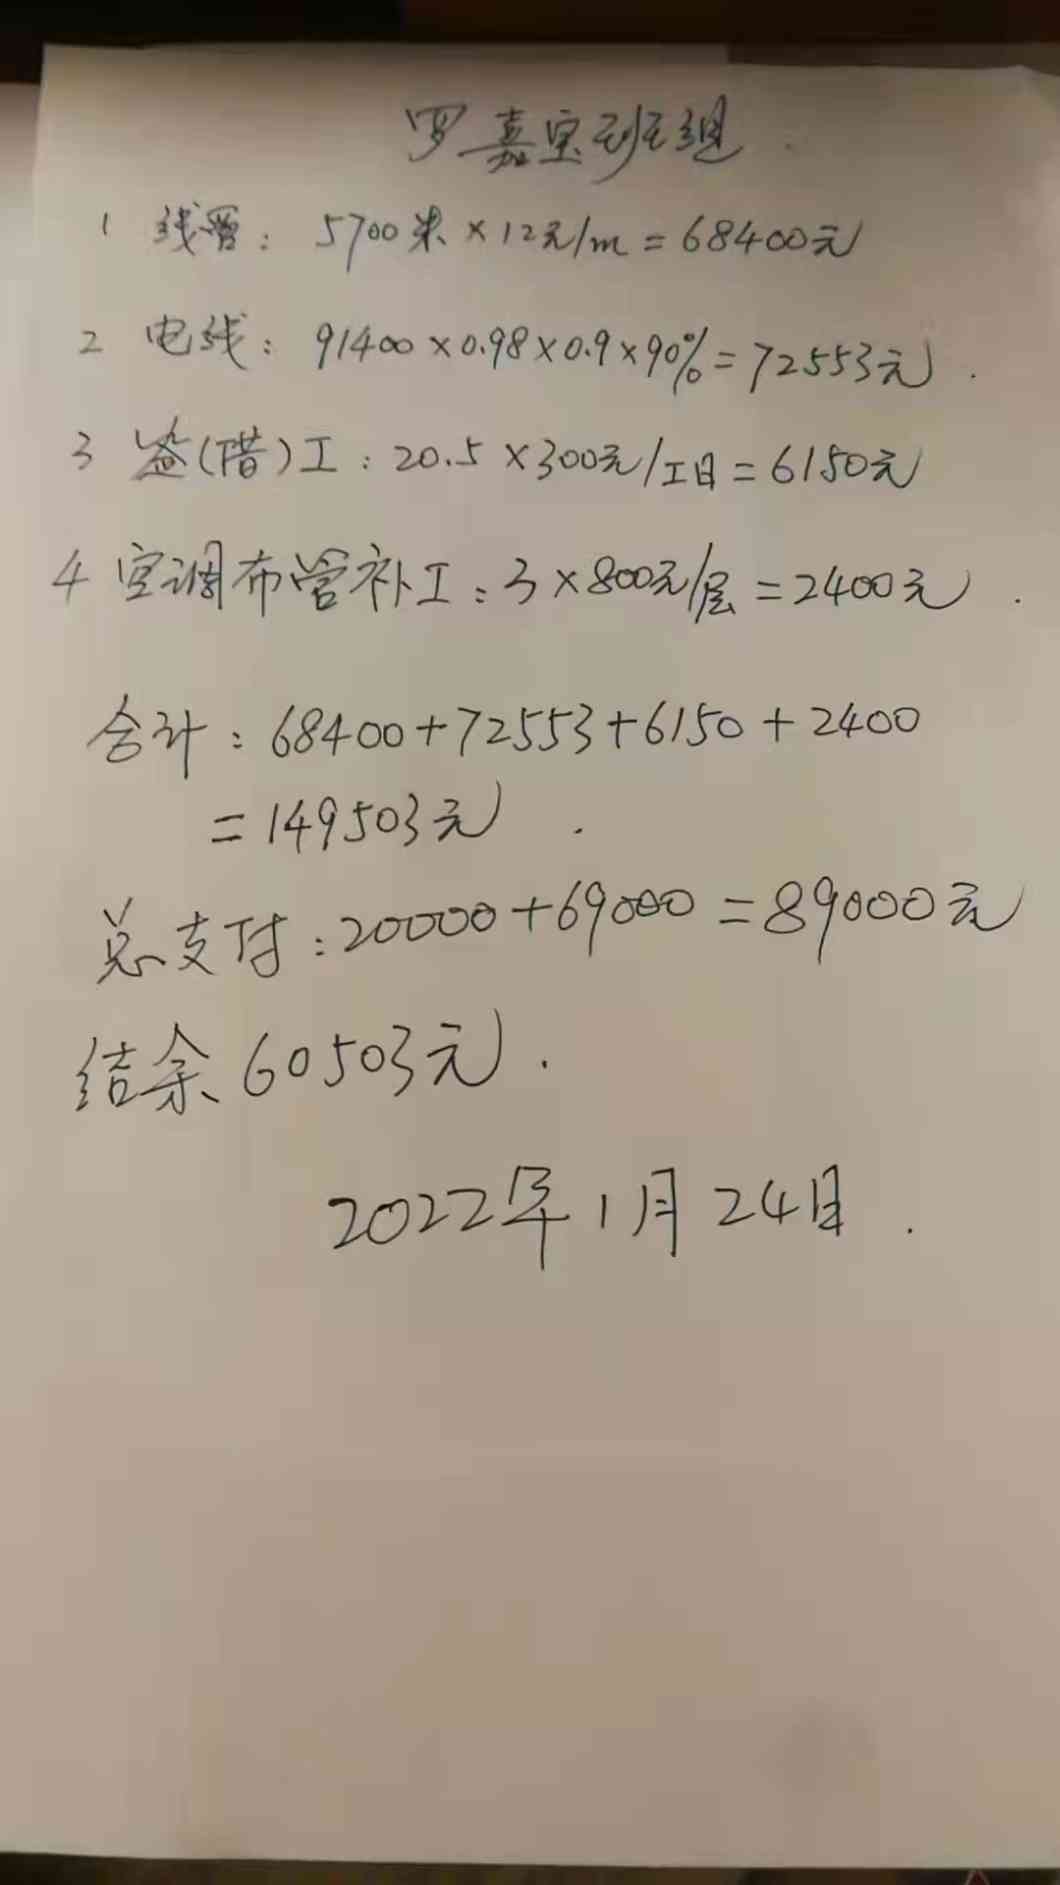 罗嘉宝班组
1 线管：5700米×12元/m=68400元
2 电线：91400×0.98×0.9×90%=72553元.
3 (借)工：20.5×300元/工日=6150元
4 空调布管补工：3×800元/层=2400元.
合计：68400+72553+6150+2400
=149503元.
总支付：20000+69000=89000元
结余60503元.
2022年1月24日.